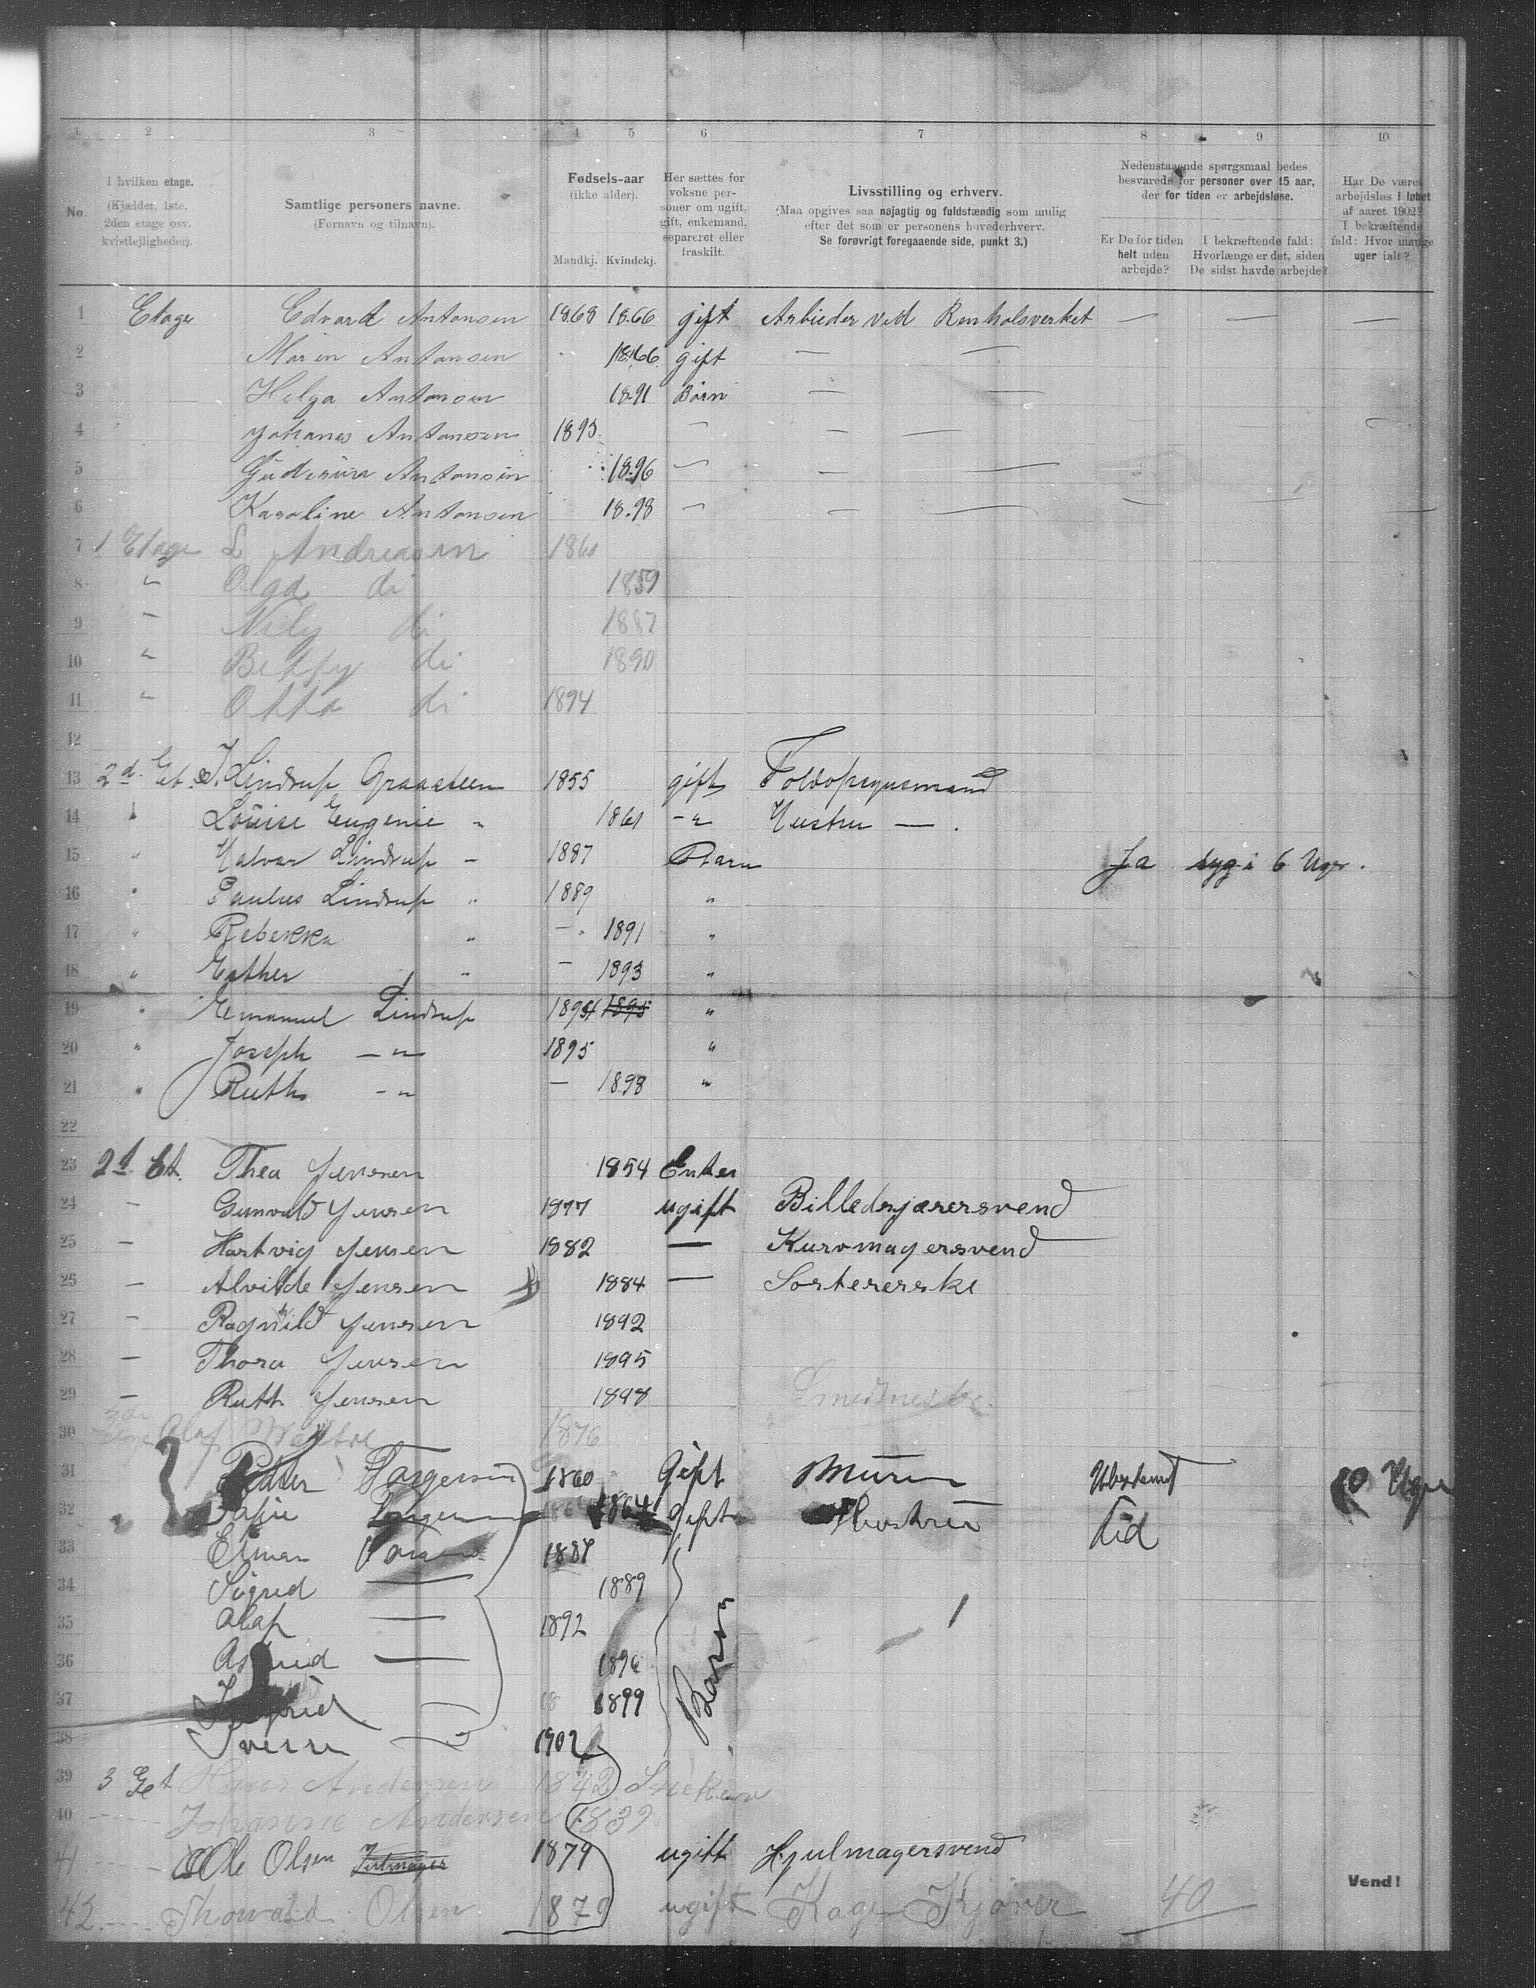 1 2 3 4 5 6 7 8 9 10
No.
I hvilken etage.
(Kjælder, 1ste,
2den etage osv.
kvistlejligheder).
Samtlige personers navne.
(Fornavn og tilnavn).
Fødsels-aar
(ikke alder).
Mandkj. Kvindekj.
Her sættes for
voksne per-
soner om ugift,
gift, enkemand,
separeret eller
fraskilt.
Livsstilling og erhverv.
(Maa opgives saa nøjagtig og fuldstændig som mulig
efter det som er personens hovederhverv.
Se forøvrigt foregaaende side, punkt 3.)
Nedenstaaende spørgsmaal bedes
besvarede for personer over 15 aar,
der for tiden er arbejdsløse.
Er De for tiden
helt uden
arbejde?
I bekræftende fald:
Hvorlænge er det, siden
De sidst havde arbejde?
Har De været
arbejdsløs i løbet
af aaret 1902?
I bekræftende
fald: Hvor mange
uger ialt?
1 Etage Edvard Antonsen 1868 1866 gift Arbieder ved Renholsverket — — —
2 Maren Antonsen 1866 gift — —
3 Helga Antonsen 1891 Børn — —
4 Johanes Antonsen 1893 — — —
5 Antonsen 1896 — — —
6 Karoline Antonsen 1898 — — —
7 1 Etage L Andreasen 1860
8 " Olga do 1859
9 " Nely do 1887
10 " Betsy do 1890
11 " Otto do 1894
12
13 2d. Et. J. Lindrup Graasteen 1855 gift
14 " Louise Eugenie " 1861 -"- Hustru —.
15 " Halvar Lindrup " 1887 Barn Ja syg i 6 Uger.
16 " Paulus Lindrup " 1889 "
17 " Rebekka " — 1891 "
18 " Esther " — 1893 "
19 " Emanuel Lindrup 1894 1895 "
20 " Joseph —"— 1895 "
21 " Ruth —"— — 1898 "
22
23 2d. Et. Thea Jensen 1854 Enke
24 — Gunvald Jensen 1877 ugift Billedskjærersvend
25 — Hartvig Jensen 1882 — Kurvmagersvend
25 — Alvilde Jensen 1884 — Sortererske
27 — Ragnhild Jensen 1892
28 — Thora Jensen 1895
29 — Ruth Jensen 1898
30 Olaf 1876
31 Peder Torgersen 1860 Gift Murer 10 Uger
32 Torgersen 1864 Gift Hustru tid
33 Einar 1887
34 Sigrid — 1889
35 Olaf — 1892
36 Astrid — 1896
37 Ingrid — 1899
Barn
38 Sverre — 1902
39 3 Et Hans Andersen 1842 Snekker
40 Johanne Andersen 1839
41 Ole Olsen 1879 ugift Hjulmagersvend
42 Thorvald Olsen 1879 ugift Kage Kjører 40
Vend!